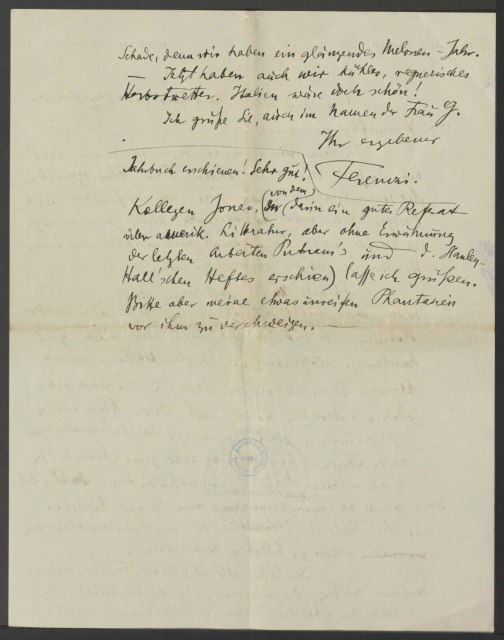 Schade, denn wir haben ein glänzendes Melonen-Jahr.
— Jetzt haben auch wir kühles, regnerisches
Herbstwetter. Italien wäre doch schön!
Ich grüße Sie, auch im Namen der Frau G.
Ihr ergebener
Ferenczi.
Jahrbuch erschienen! Sehr gut!
Kollegen Jones, (von dem
darin ein gutes Referat
über amerik. Litteratur, aber ohne Erwähnung
der letzten Arbeiten Putnam's und d. Stanley-
Hall'schen Heftes erschien) lasse ich grüßen.
Bitte aber meine etwas unreifen Phantasien
vor ihm zu verschweigen. —